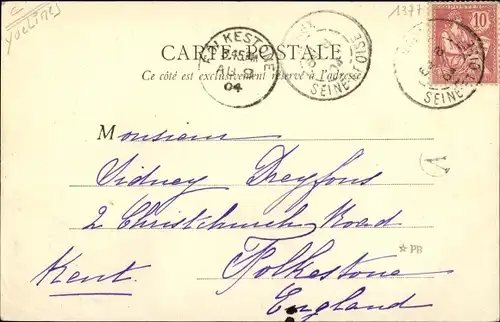 1377
CARTE POSTALE
Ce côté est exclusivement réservé à l'adresse
FOLKESTONE
9.15AM
AU
04
SEINE ET OISE
10
SEINE ET OISE
Monsieur
Sidney Dreyfous
2 Christchurch Road
Folkestone
Kent.
England
V
☆ PB